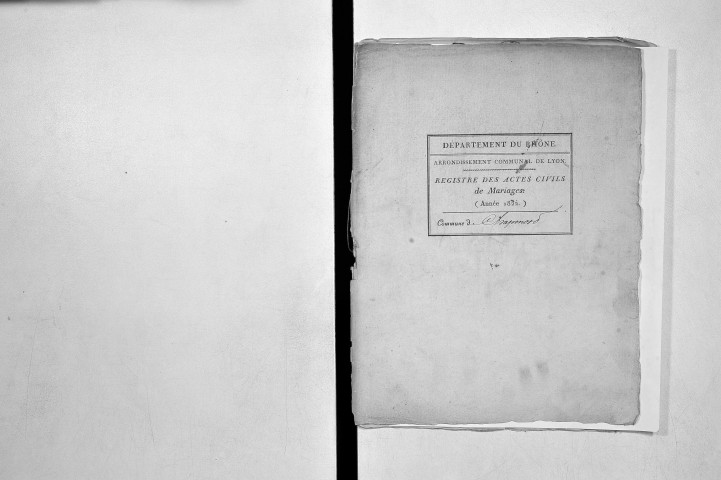 DEPARTEMENT DU RHÔNE
ARRONDISSEMENT COMMUNAL DE LYON.
REGISTRE DES ACTES CIVILS
de Mariages
( Année 1835. )
Commune d